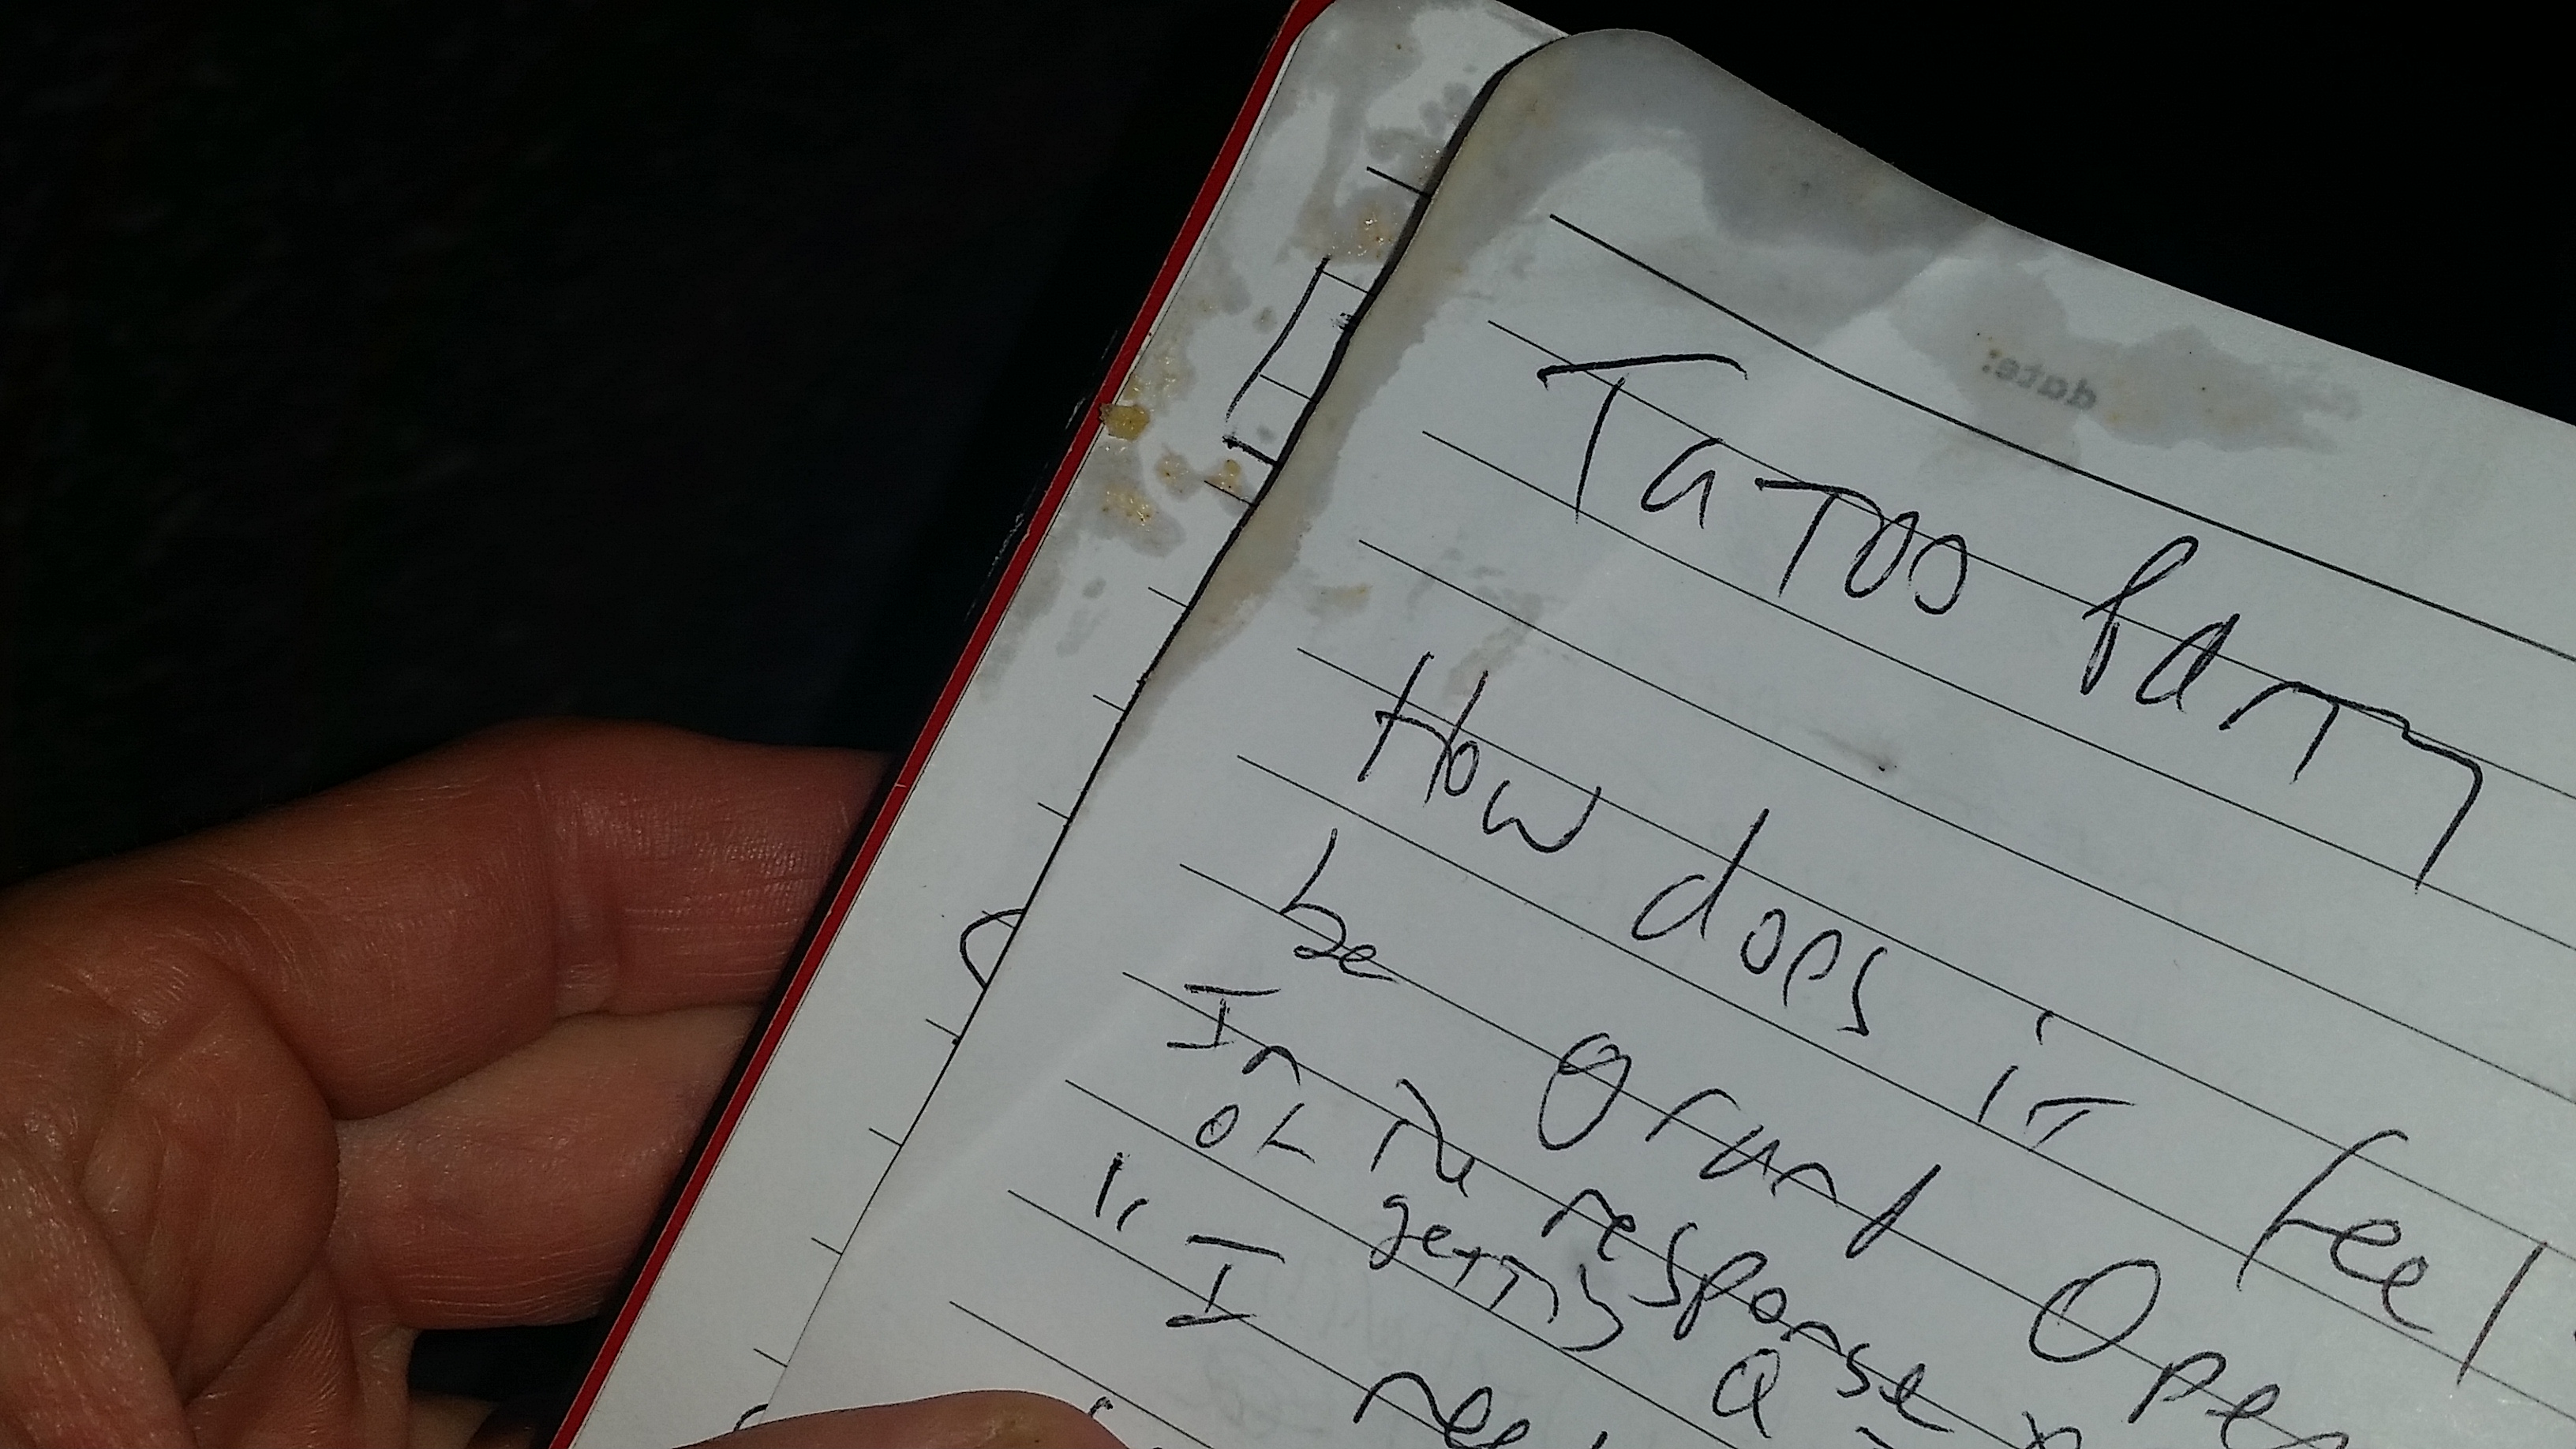 date:
Tatoo Party
How does it feel
be Grand Ope
In the response
of getting a
"I